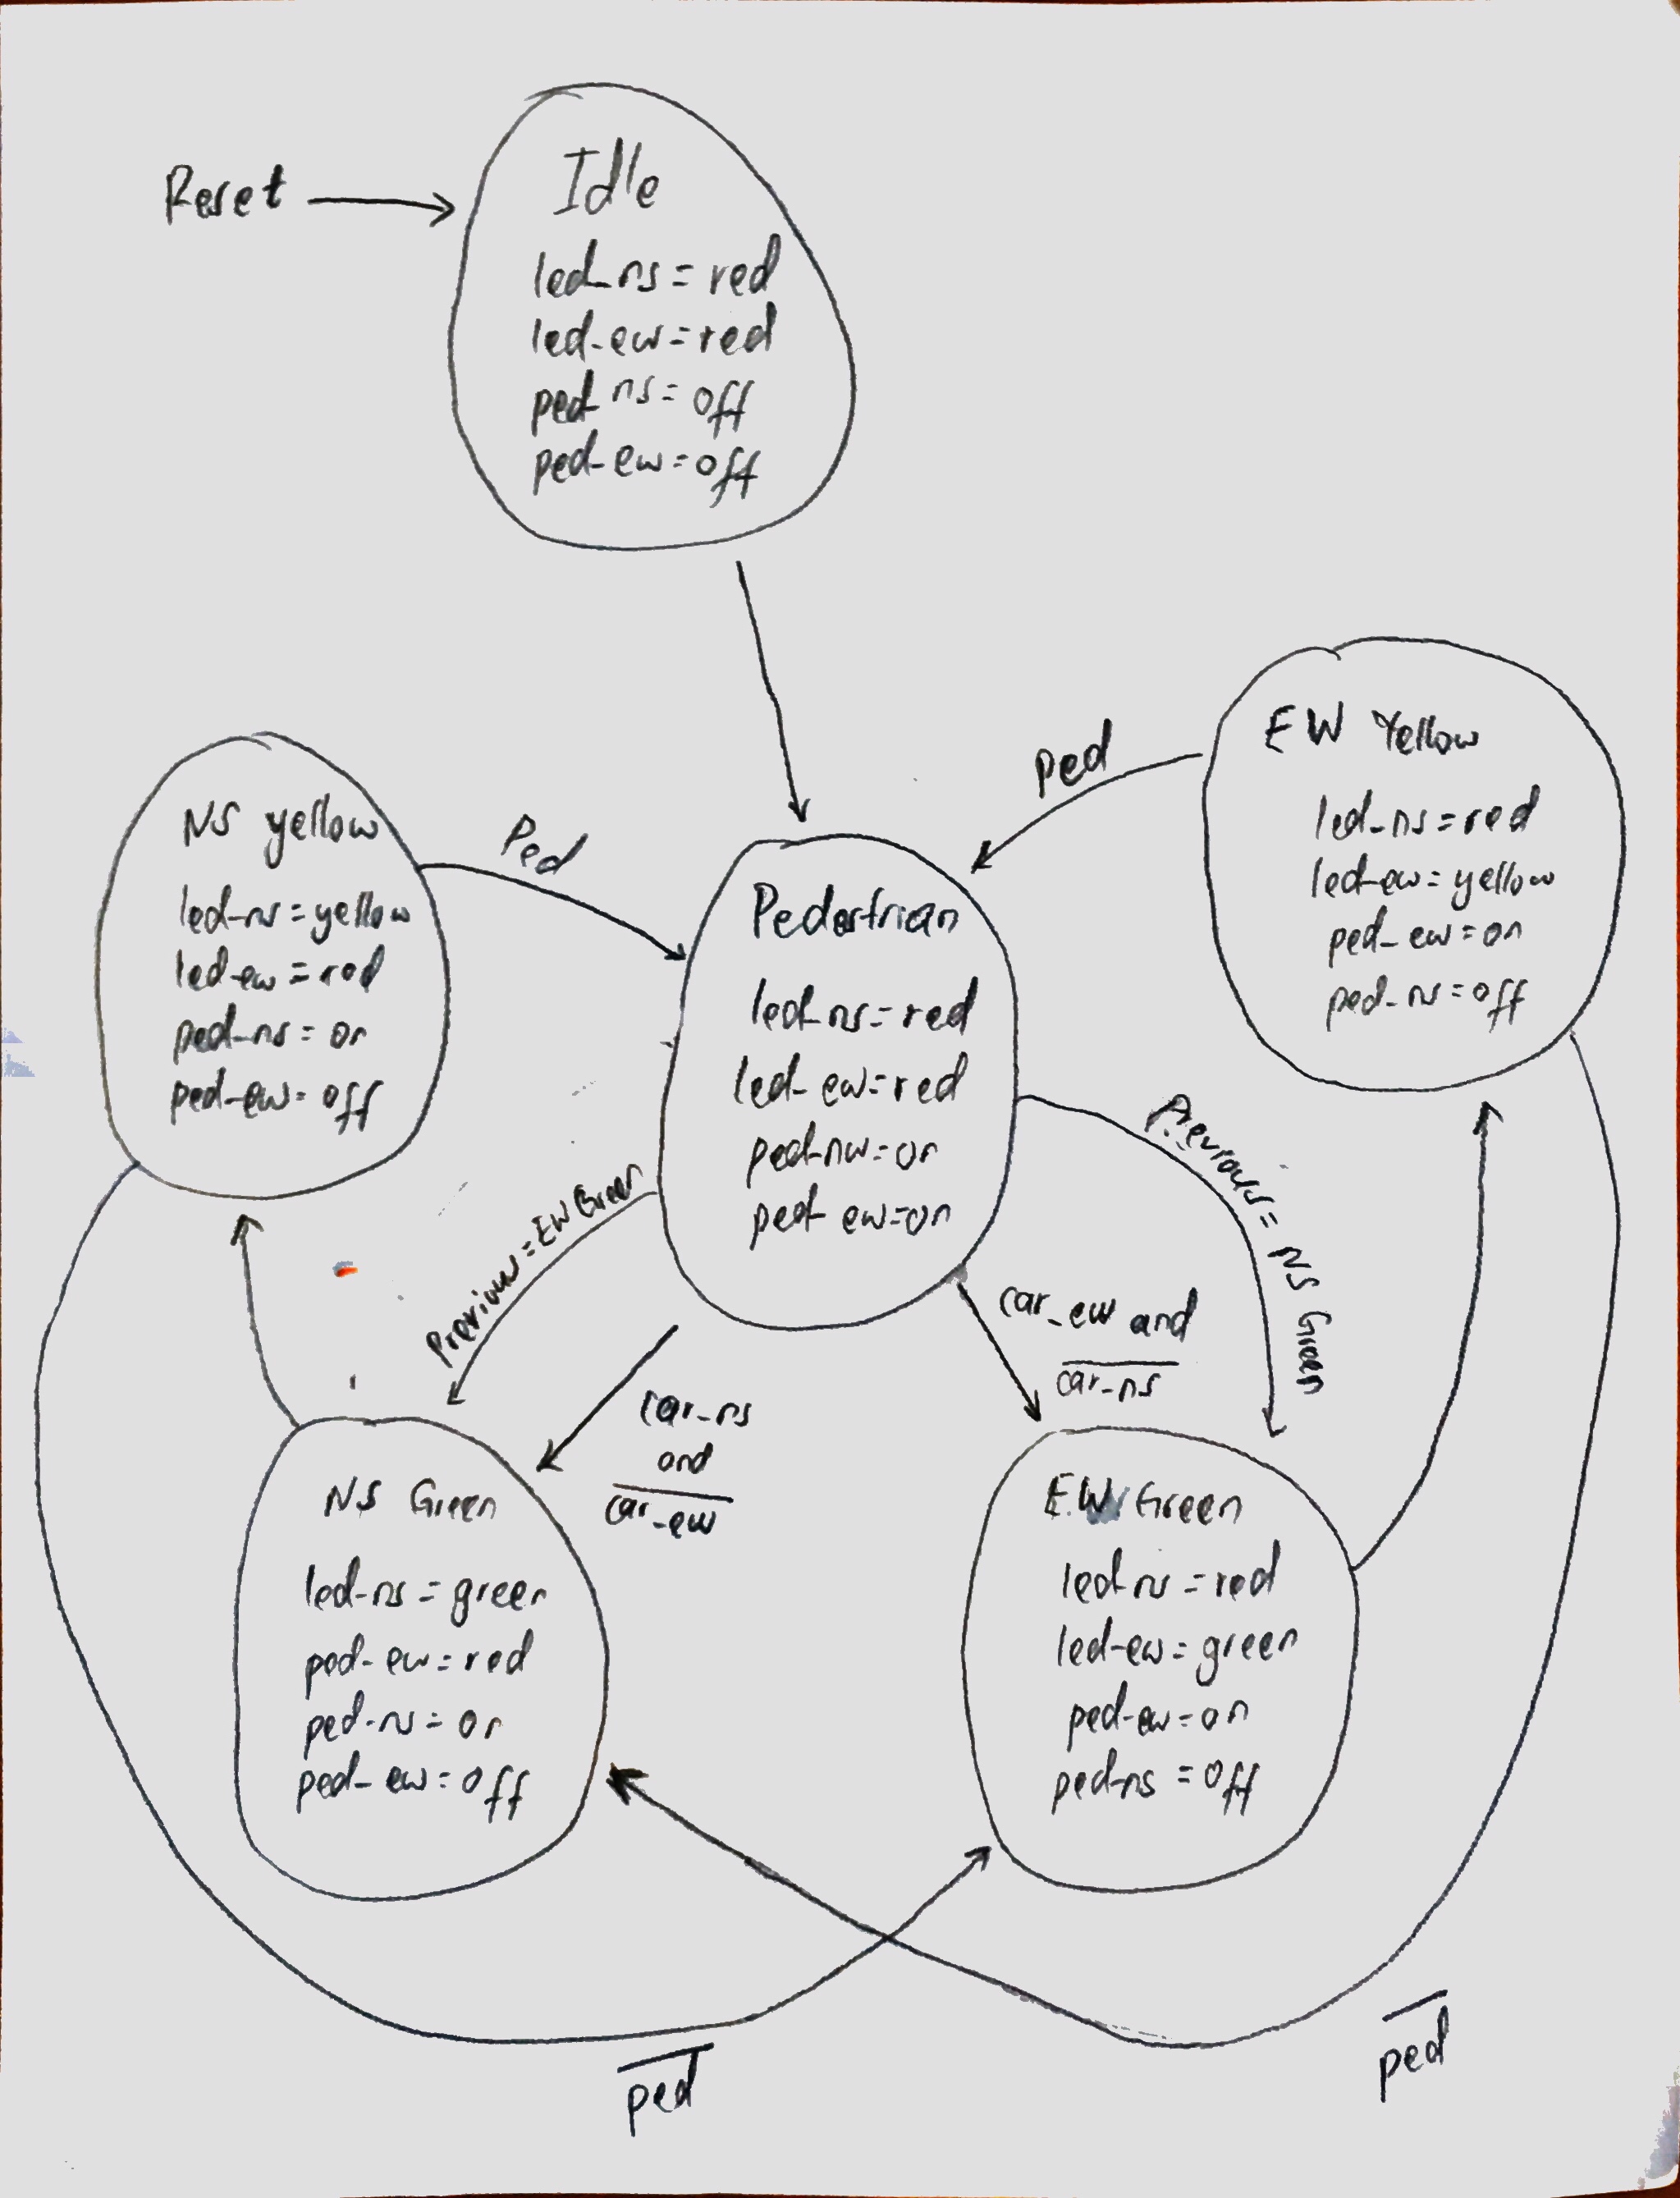 Reset
Idle
led-ns = red
led-ew = red
ped-ns = off
ped-ew = off
EW Yellow
led-ns = red
led-ew = yellow
ped-ew = on
ped-ns = off
ped
NS yellow
led-ns = yellow
led-ew = red
ped-ns = on
ped-ew = off
Ped
Pedestrian
led-ns = red
led-ew = red
ped-nw = on
ped-ew = on
Previous = EW Green
Previous = NS Green
car-ns
and
c̅a̅r̅-̅e̅w̅
car_ew and
c̅a̅r̅-̅n̅s̅
NS Green
led-ns = green
ped-ew = red
ped-ns = on
ped-ew = off
EW Green
led-ns = red
led-ew = green
ped-ew = on
ped-ns = off
p̅e̅d̅
p̅e̅d̅